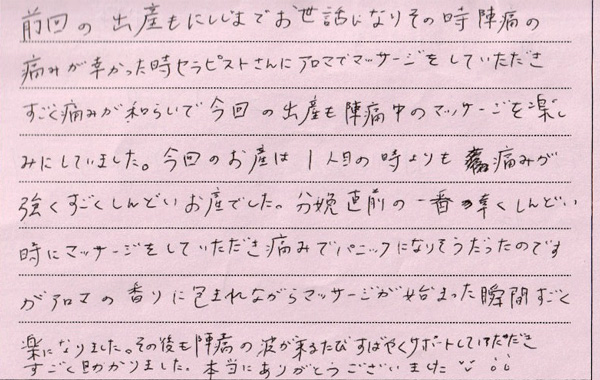 前回の出産もにしじまでお世話になりその時陣痛の
痛みが辛かった時セラピストさんにアロマでマッサージをしていただき
すごく痛みが和らいで今回の出産も陣痛中のマッサージを楽し
みにしていました。今回のお産は1人目の時よりも 痛みが
強くすごくしんどいお産でした。分娩直前の一番辛くしんどい
時にマッサージをしていただき痛みでパニックになりそうだったのです
がアロマの香りに包まれながらマッサージが始まった瞬間すごく
楽になりました。その後も陣痛の波が来るたびすばやくサポートしていただき
すごく助かりました。本当にありがとうございました